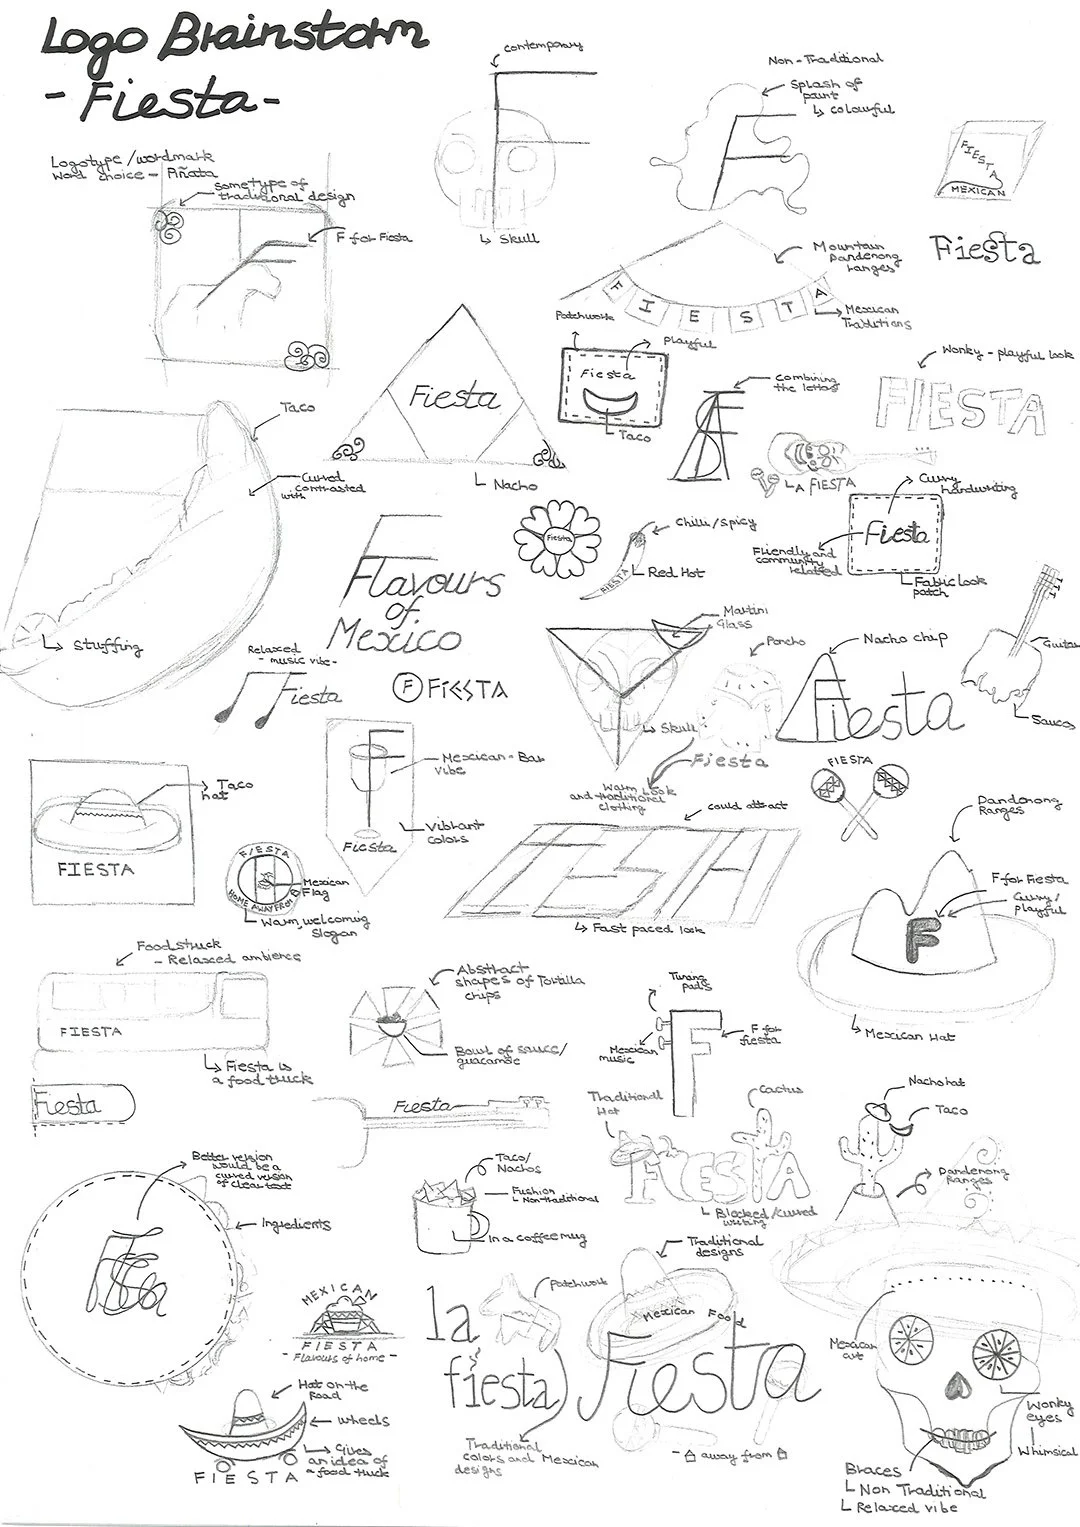 Logo Brainstorm
- Fiesta -
contemporary
F
↳ Skull
Non-Traditional
Splash of
paint
↳ colourful
F
FIESTA
MEXICAN
Logotype/wordmark
word choice - Piñata
Some type of
traditional design
F for Fiesta
Mountain
Dandenong
ranges
FIESTA
Mexican
Traditions
Fiesta
Patchwork
playful
Fiesta
Taco
Fiesta
Nacho
Combining
the letters
Wonky - playful look
FIESTA
LA FIESTA
Taco
Curved
contrasted
with
Stuffing
Flavours
of
Mexico
Fiesta
Chilli/Spicy
Red Hot
FIESTA
Curvy
handwriting
Fiesta
Friendly and
community
related
Fabric look
patch
Relaxed
- music vibe -
Fiesta
F FIESTA
Martini
Glass
Skull
Poncho
Fiesta
Warm Look
and traditional
clothing
Nacho chip
Fiesta
Guitar
Sauces
Taco
hat
FIESTA
Mexican - Bar
vibe
Vibrant
colors
Fiesta
FIESTA
HOME AWAY FROM
Mexican
Flag
Warm, welcoming
slogan
could attract
FIESTA
Fast paced look
FIESTA
Dandenong
Ranges
F for Fiesta
Curvy/
playful
F
Mexican Hat
Foodstruck
- Relaxed ambience
FIESTA
Fiesta is
a food truck
Abstract
shapes of Tortilla
chips
Bowl of sauce/
guacamole
Tuning
pads
Mexican
music
F for
fiesta
F
Fiesta
Fiesta
Traditional
Hat
Cactus
FIESTA
Blocked/curved
writing
Nacho hat
Taco
Dandenong
Ranges
Better version
would be a
curved version
of clear text
Ingredients
Fiesta
Taco/
Nachos
Fushion
↳ Non-traditional
In a coffee mug
MEXICAN
FIESTA
- Flavours of home -
la
fiesta
Patchwork
Traditional
colors and Mexican
designs
Traditional
designs
Mexican Food
Fiesta
- away from
Hat on the
road
wheels
Gives
an idea of
a food truck
FIESTA
Mexican
art
Wonky
eyes
Whimsical
Braces
↳ Non Traditional
↳ Relaxed vibe